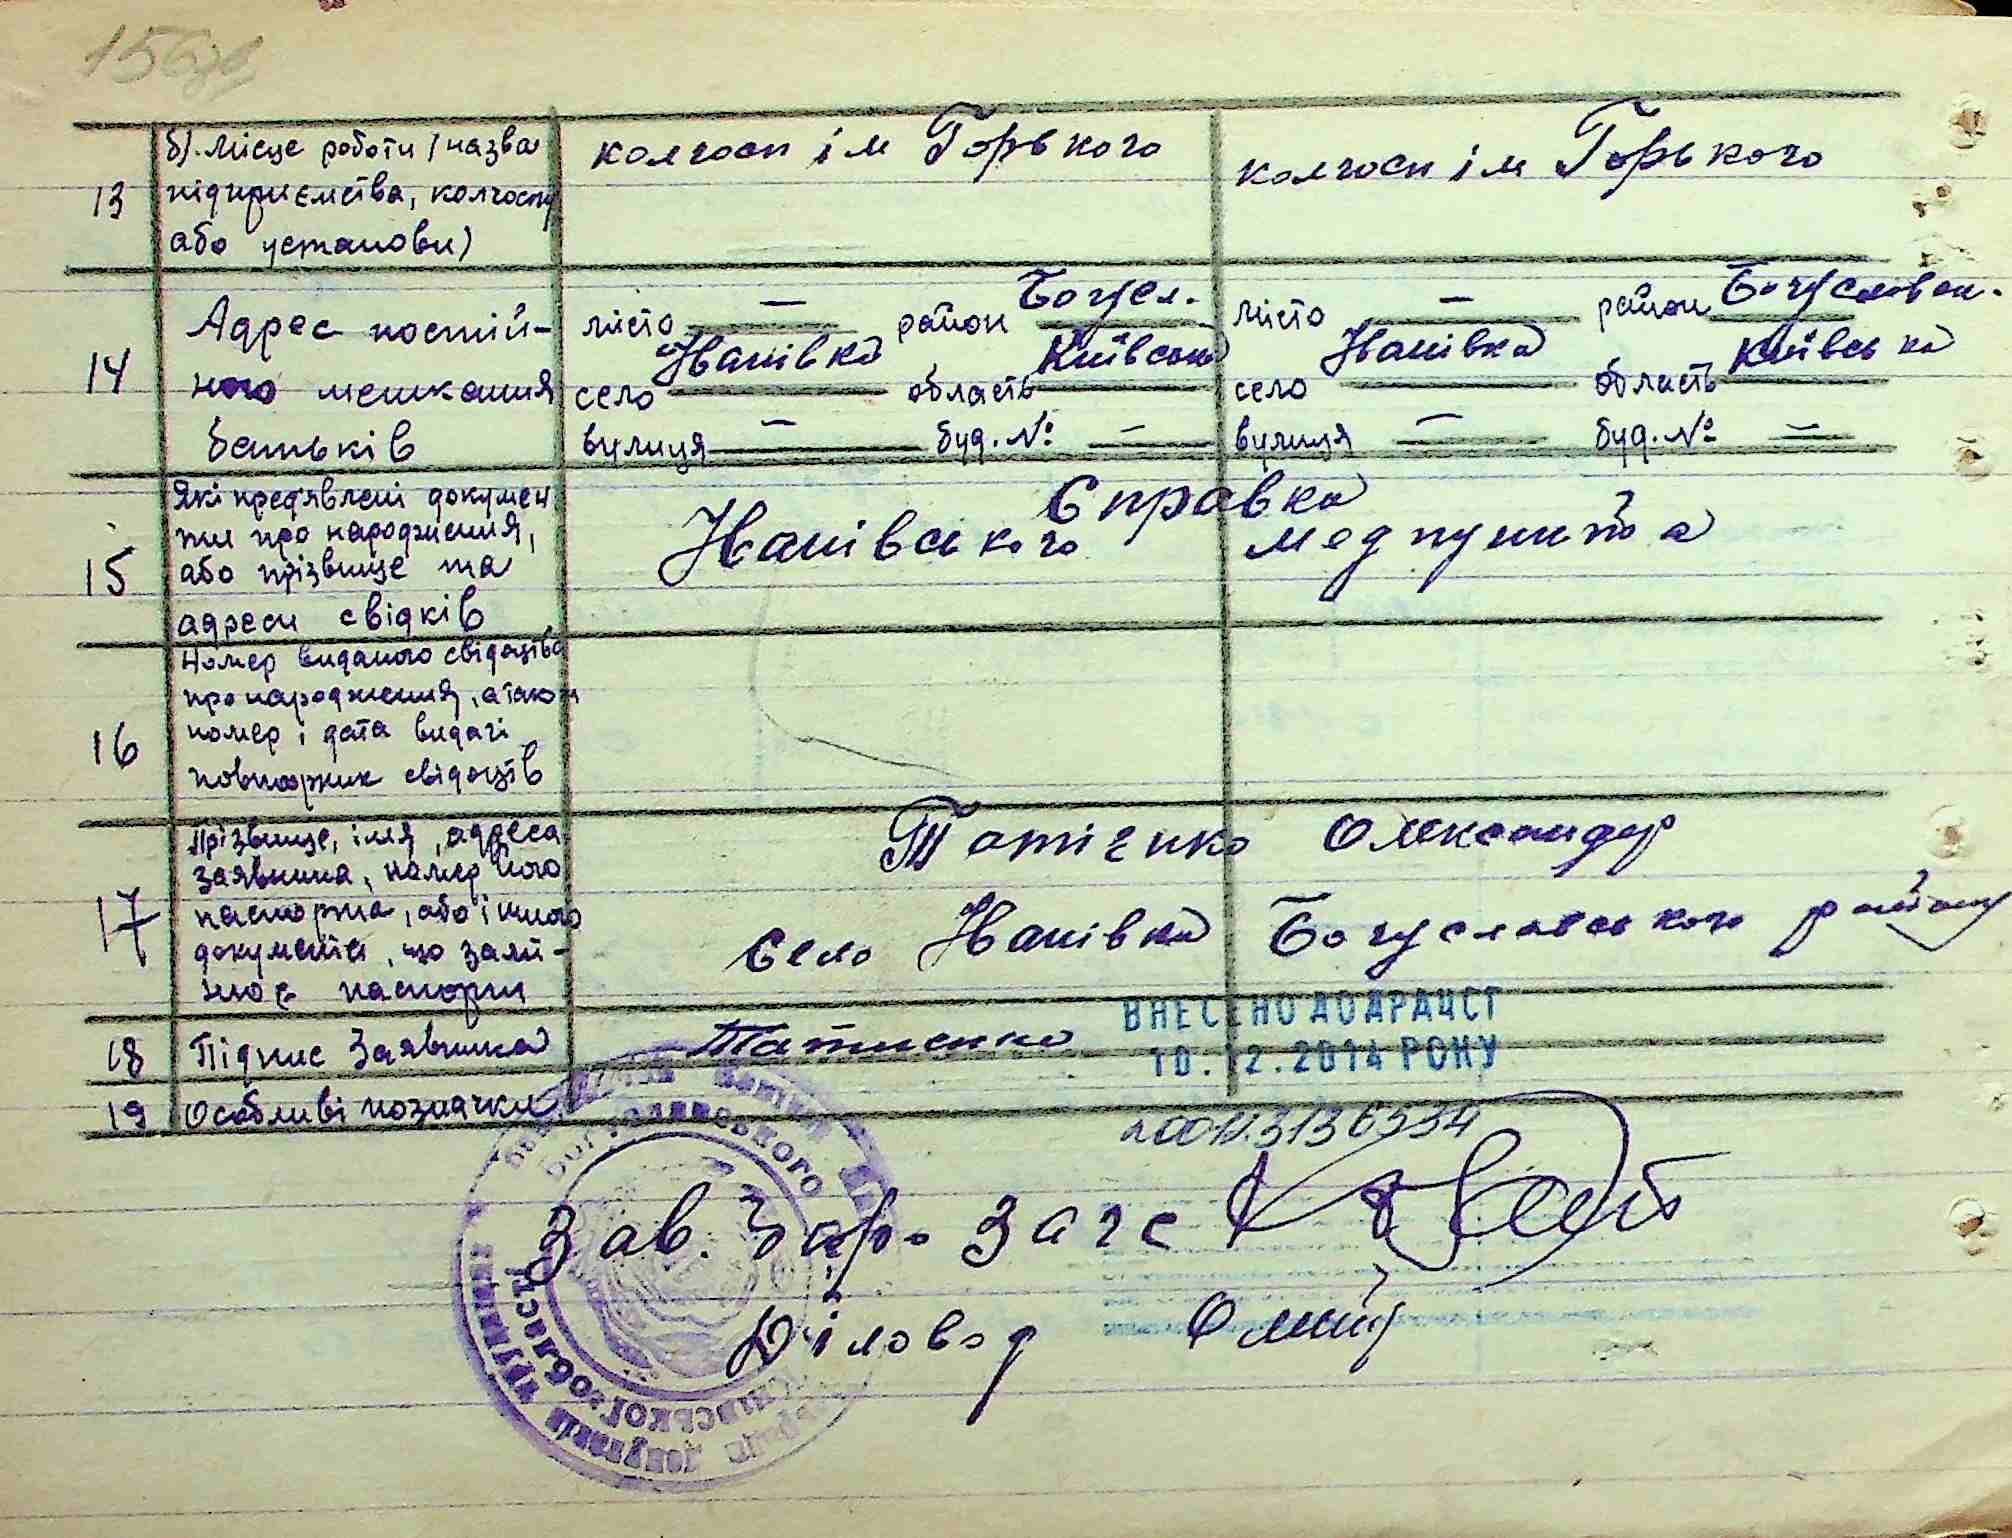 156зв
13 б). Місце роботи (назва підприємства, колгоспу або установи)
колгосп ім Горького
колгосп ім Горького
14 Адрес постій-
ного мешкання
батьків
місто — район Богусл.
село Іванівка область Київська
вулиця — буд. № —
місто — район Богуславськ.
село Іванівка область Київська
вулиця — буд. № —
15 Які предявлені докумен
ти про народження,
або прізвище та
адреси свідків
Справка
Іванівського медпункта
16 Номер виданого свідоцтва
про народження, а також
номер і дата видачі
повторних свідоцтв
17 Прізвище, імя, адреса
заявника, номер його
паспорта, або іншого
документа, що замі-
нює паспорт
Татієнко Олександр
село Іванівка Богуславського району
18 Підпис Заявника
Татиенко
ВНЕСЕНО ДО ДРАЦСГ
10.12.2014 РОКУ
19 Особливі позначки
Богуславського
Київської області
депутатів трудящих
Зав. Бюро Загс
Діловод